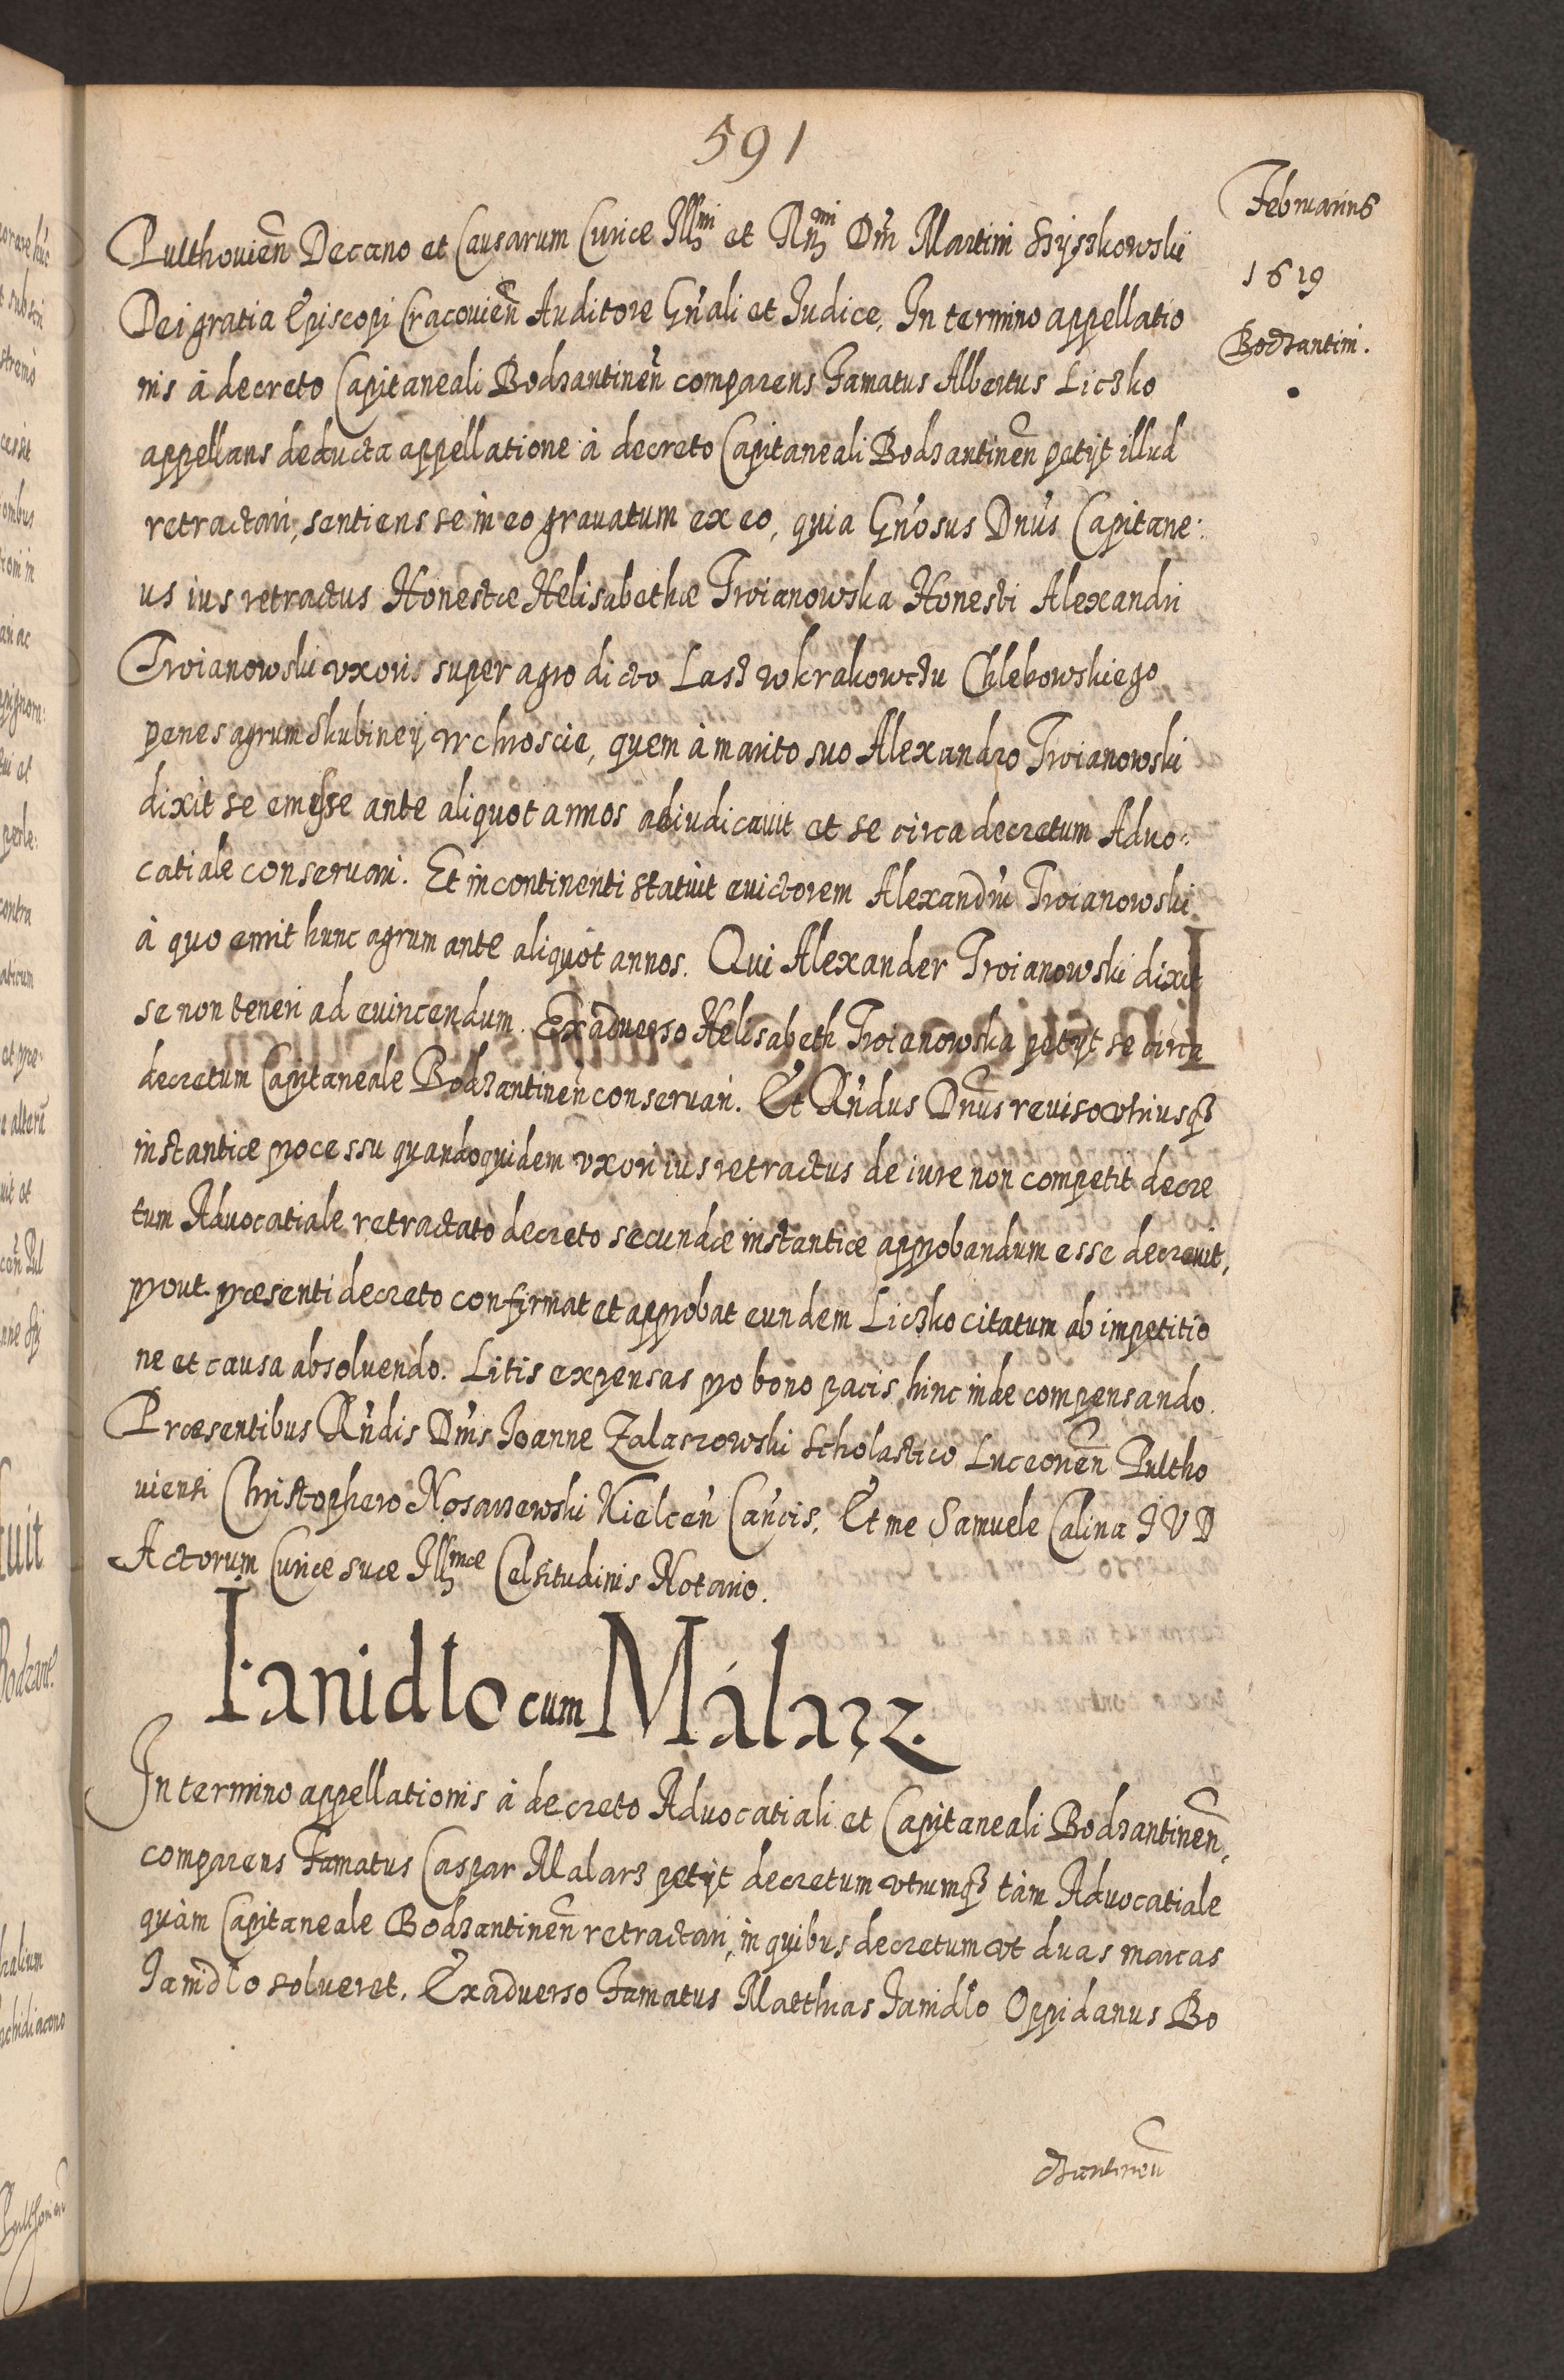 591
Februarius
1619
Bodzantini.
Pulthouien̄ Decano et Causarum Curiæ Illmi et Rn̄mi Dn̄i Martini Szyszkowski
Dei gratia Episcopi Cracouien̄ Auditore Gn̄ali et Iudice, In termino appellatio
nis à decreto Capitaneali Bodzantinen̄ comparens Famatus Albertus Liczko
appellans deducta appellatione à decreto Capitaneali Bodzantinen̄ petijt illud
retractari, sentiens se in eo grauatum ex eo, quia Gn̄osus Dn̄us Capitane:
us ius retractus Honestæ Helisabethæ Troianowska Honesti Alexandri
Troianowski vxoris super agro dicto Last w krakowczu Chlebowskiego
penes agrum Skubiney w chroscie, quem à marito suo Alexandro Troianowski
dixit se emisse ante aliquot annos adiudicauit et se circa decretum Aduo:
catiale conseruari. Et in continenti statuit euictorem Alexandrū Troianowski
à quo emit hunc agrum ante aliquòt annos. Qui Alexander Troianowski dixit
se non teneri ad euincendum. Ex aduerso Helisabeth Troianowska petijt se circa
decretum Capitaneale Bodzantinen̄ conseruari. Et Rn̄dus Dn̄us reuiso vtriusqꝫ
instantiæ processu quandoquidem vxori ius retractus de iure non competit decre
tum Aduocatiale retractato decreto secundæ instantiæ approbandum esse decreuit,
prout præsenti decreto confirmat et approbat eundem Liczko citatum ab impetitio
ne et causa absoluendo. Litis expensas pro bono pacis hinc inde compensando.
Præsentibus Rn̄dis Dn̄is Ioanne Zalaszowski Scholastico Luceorien̄ Pultho
uiensi Christophero Nosarzewski Kielcen̄ Can̄cis, Et me Samuele Calina I V D
Actorum Curiæ suæ Illmæ Celsitudinis Notario.
Ianidlo cum Málarz.
In termino appellationis à decreto Aduocatiali et Capitaneali Bodzantinen̄,
comparens Famatus Caspar Malarz petijt decretum vtrumqꝫ tàm Aduocatiale
quàm Capitaneale Bodzantinen̄ retractari, in quibus decretum vt duas marcas
Ianidlo solueret, Ex aduerso Famatus Matthias Ianidlo Oppidanus Bo
dzantinen̄